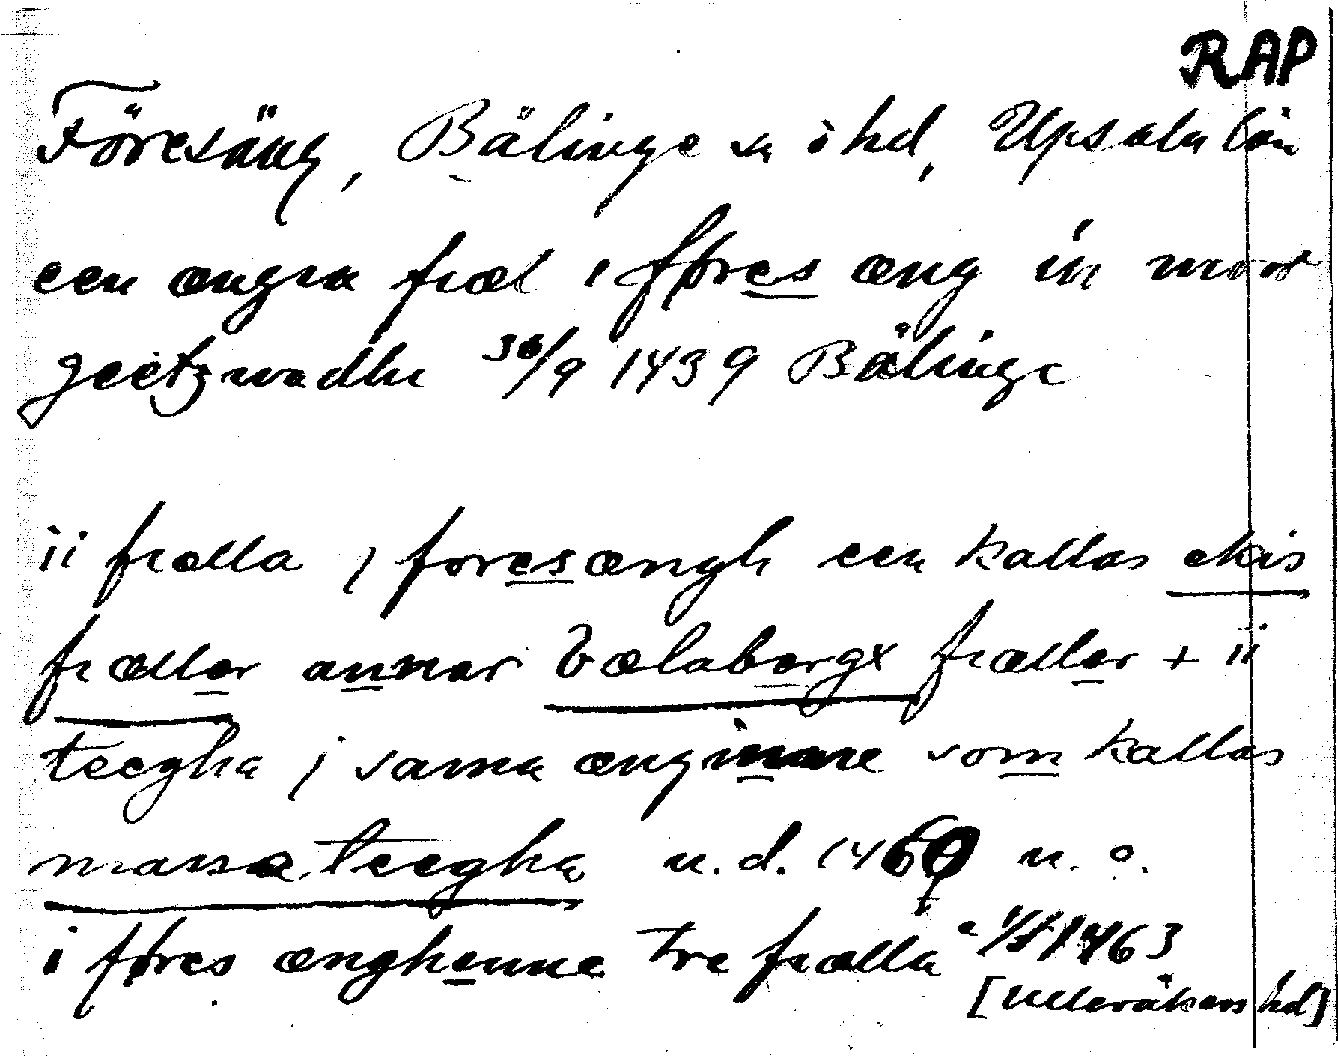 RAP
Föresäng, Bälinge sn o hd, Upsala län
een ængia fiæl i føres æng in moot
geetzwadhe 30/9 1439 Bälinge
ii fiælla j foresængh een kallas ekis
fiæller annar Vælabergx fiæller + ii
teegha j sama ænginne som kallas
marsæ teegha u.d. 1469 u. o.
i føres ænghenne tre fiælla 1463
[Ulleråkers hd]